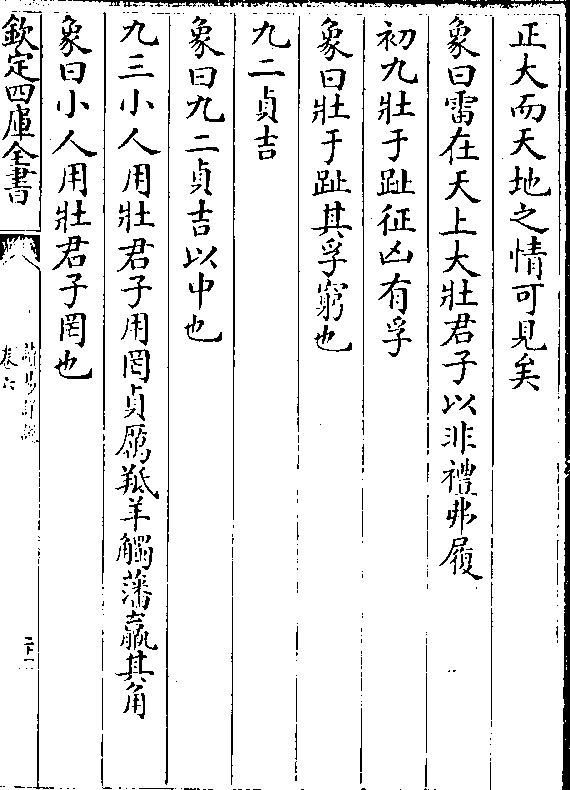 正大而天地之情可見矣
象曰雷在天上大壯君子以非禮弗履
初九壯于趾征凶有孚
象曰壯于趾其孚窮也
九二貞吉
象曰九二貞吉以中也
九三小人用壯君子用罔貞厲羝羊觸藩羸其角
象曰小人用壯君子罔也
欽定四庫全書
卷六